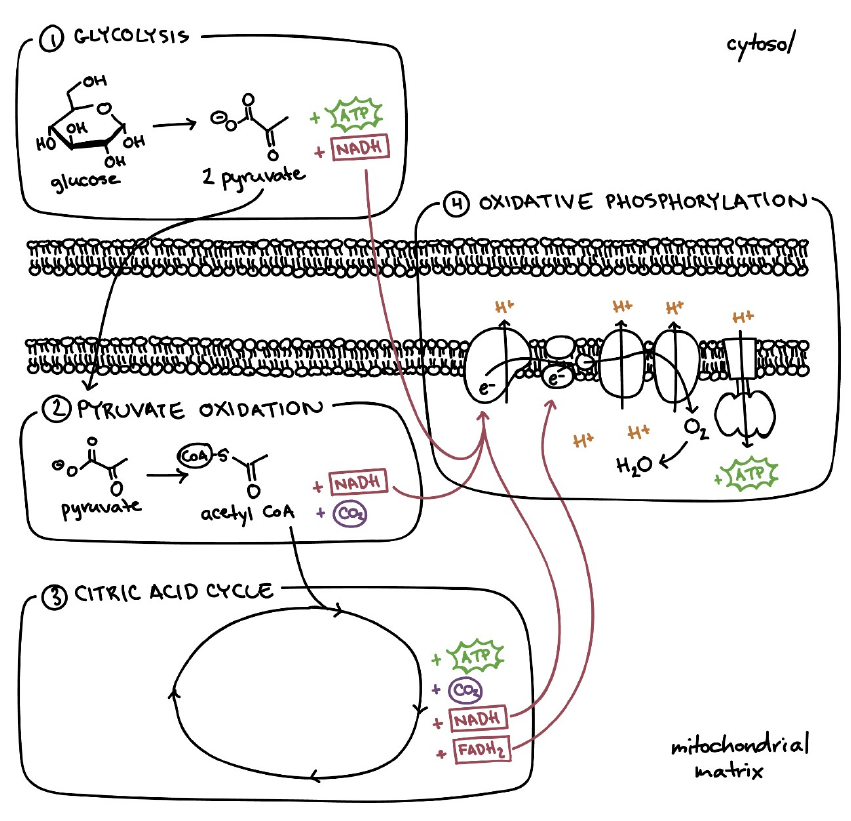 ① GLYCOLYSIS
cytosol
OH
O
OH
HO
OH
OH
glucose
⊖
O
O
O
2 pyruvate
+ ATP
+ NADH
④ OXIDATIVE PHOSPHORYLATION
H+
H+
H+
H+
e-
e-
H+
H+
O₂
H₂O
+ ATP
② PYRUVATE OXIDATION
⊖
O
O
O
pyruvate
CoA-S
O
acetyl CoA
+ NADH
+ CO₂
③ CITRIC ACID CYCLE
+ ATP
+ CO₂
+ NADH
+ FADH₂
mitochondrial
matrix